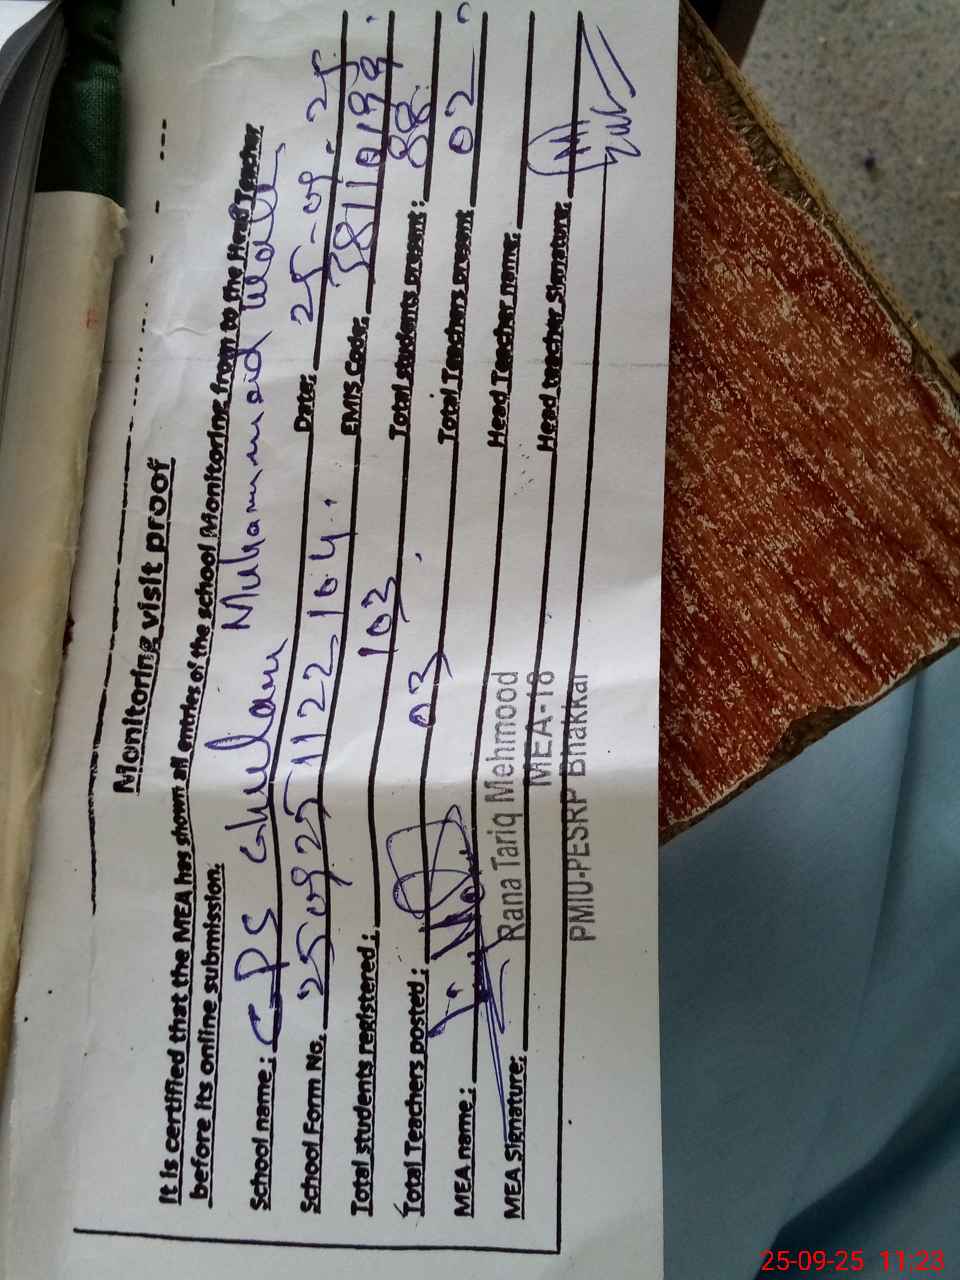 Monitoring visit proof
It is certified that the MEA has shown all entries of the school Monitoring from to the Head Teacher
before its online submission.
School name : GPS Ghulam Muhammad Wala
School Form No. 2509251122104. Date: 25-09-25.
Total students registered : 103 EMIS Code: 38110199.
Total Teachers posted : 03 Total students present : 88.
MEA name : Total Teachers present 02
MEA Signature: Head Teacher name:
Head teacher Signature:
Rana Tariq Mehmood
MEA-18
PMIU-PESRP Bhakkar
25-09-25 11:23